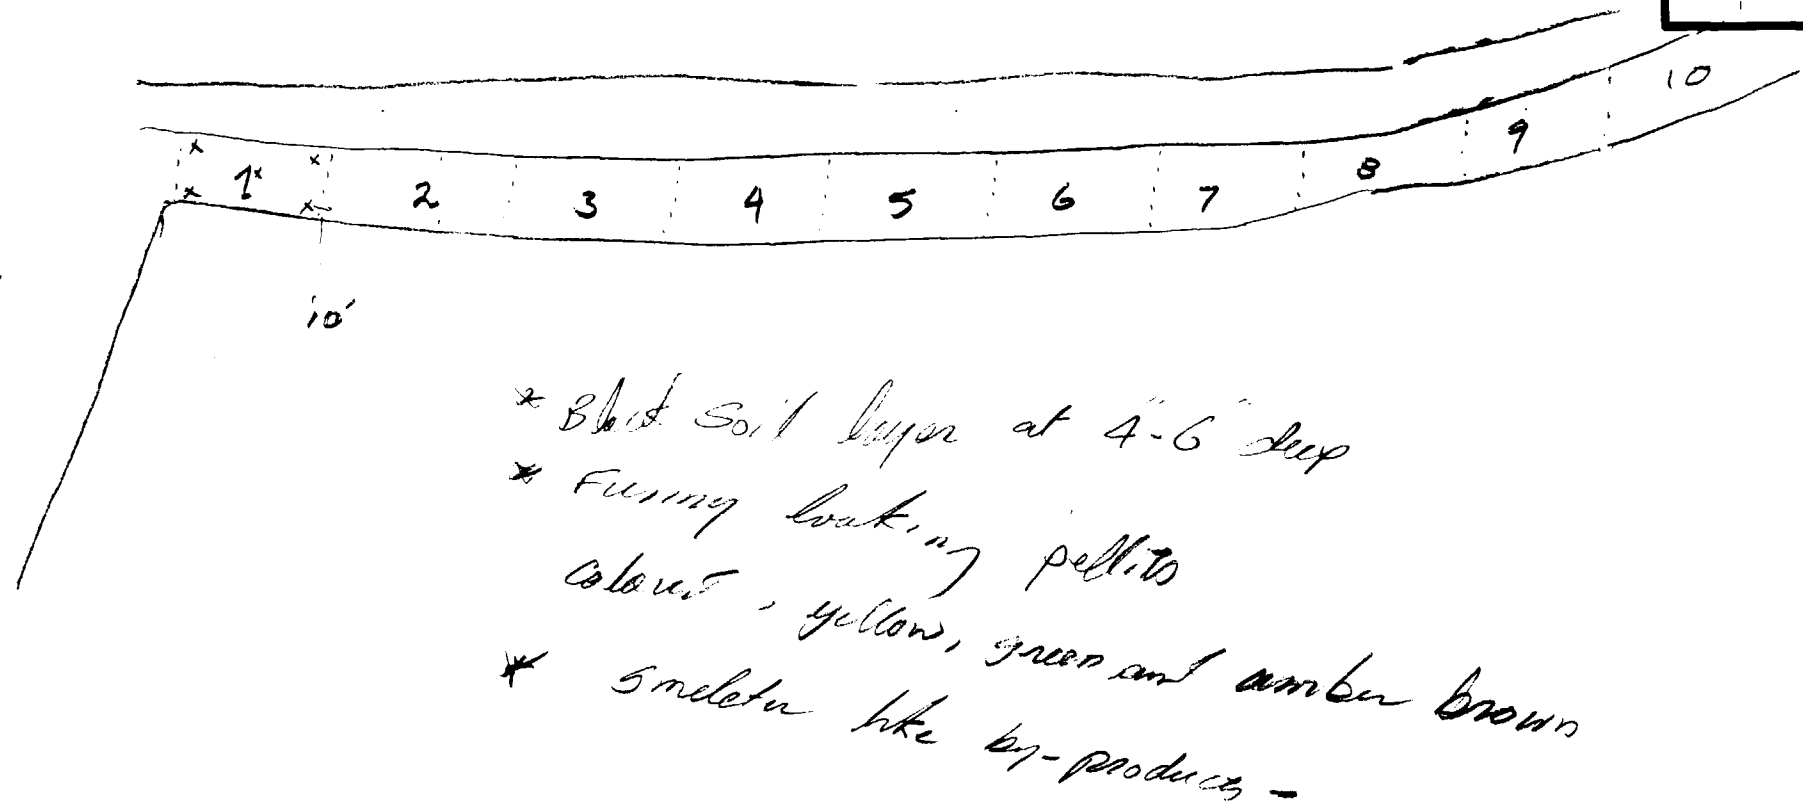 1 2 3 4 5 6 7 8 9 10
10'
* Black Soil layer at 4"-6" deep
* Funny looking pellits
colours, yellow, green and amber brown
* Smelter like by-products -